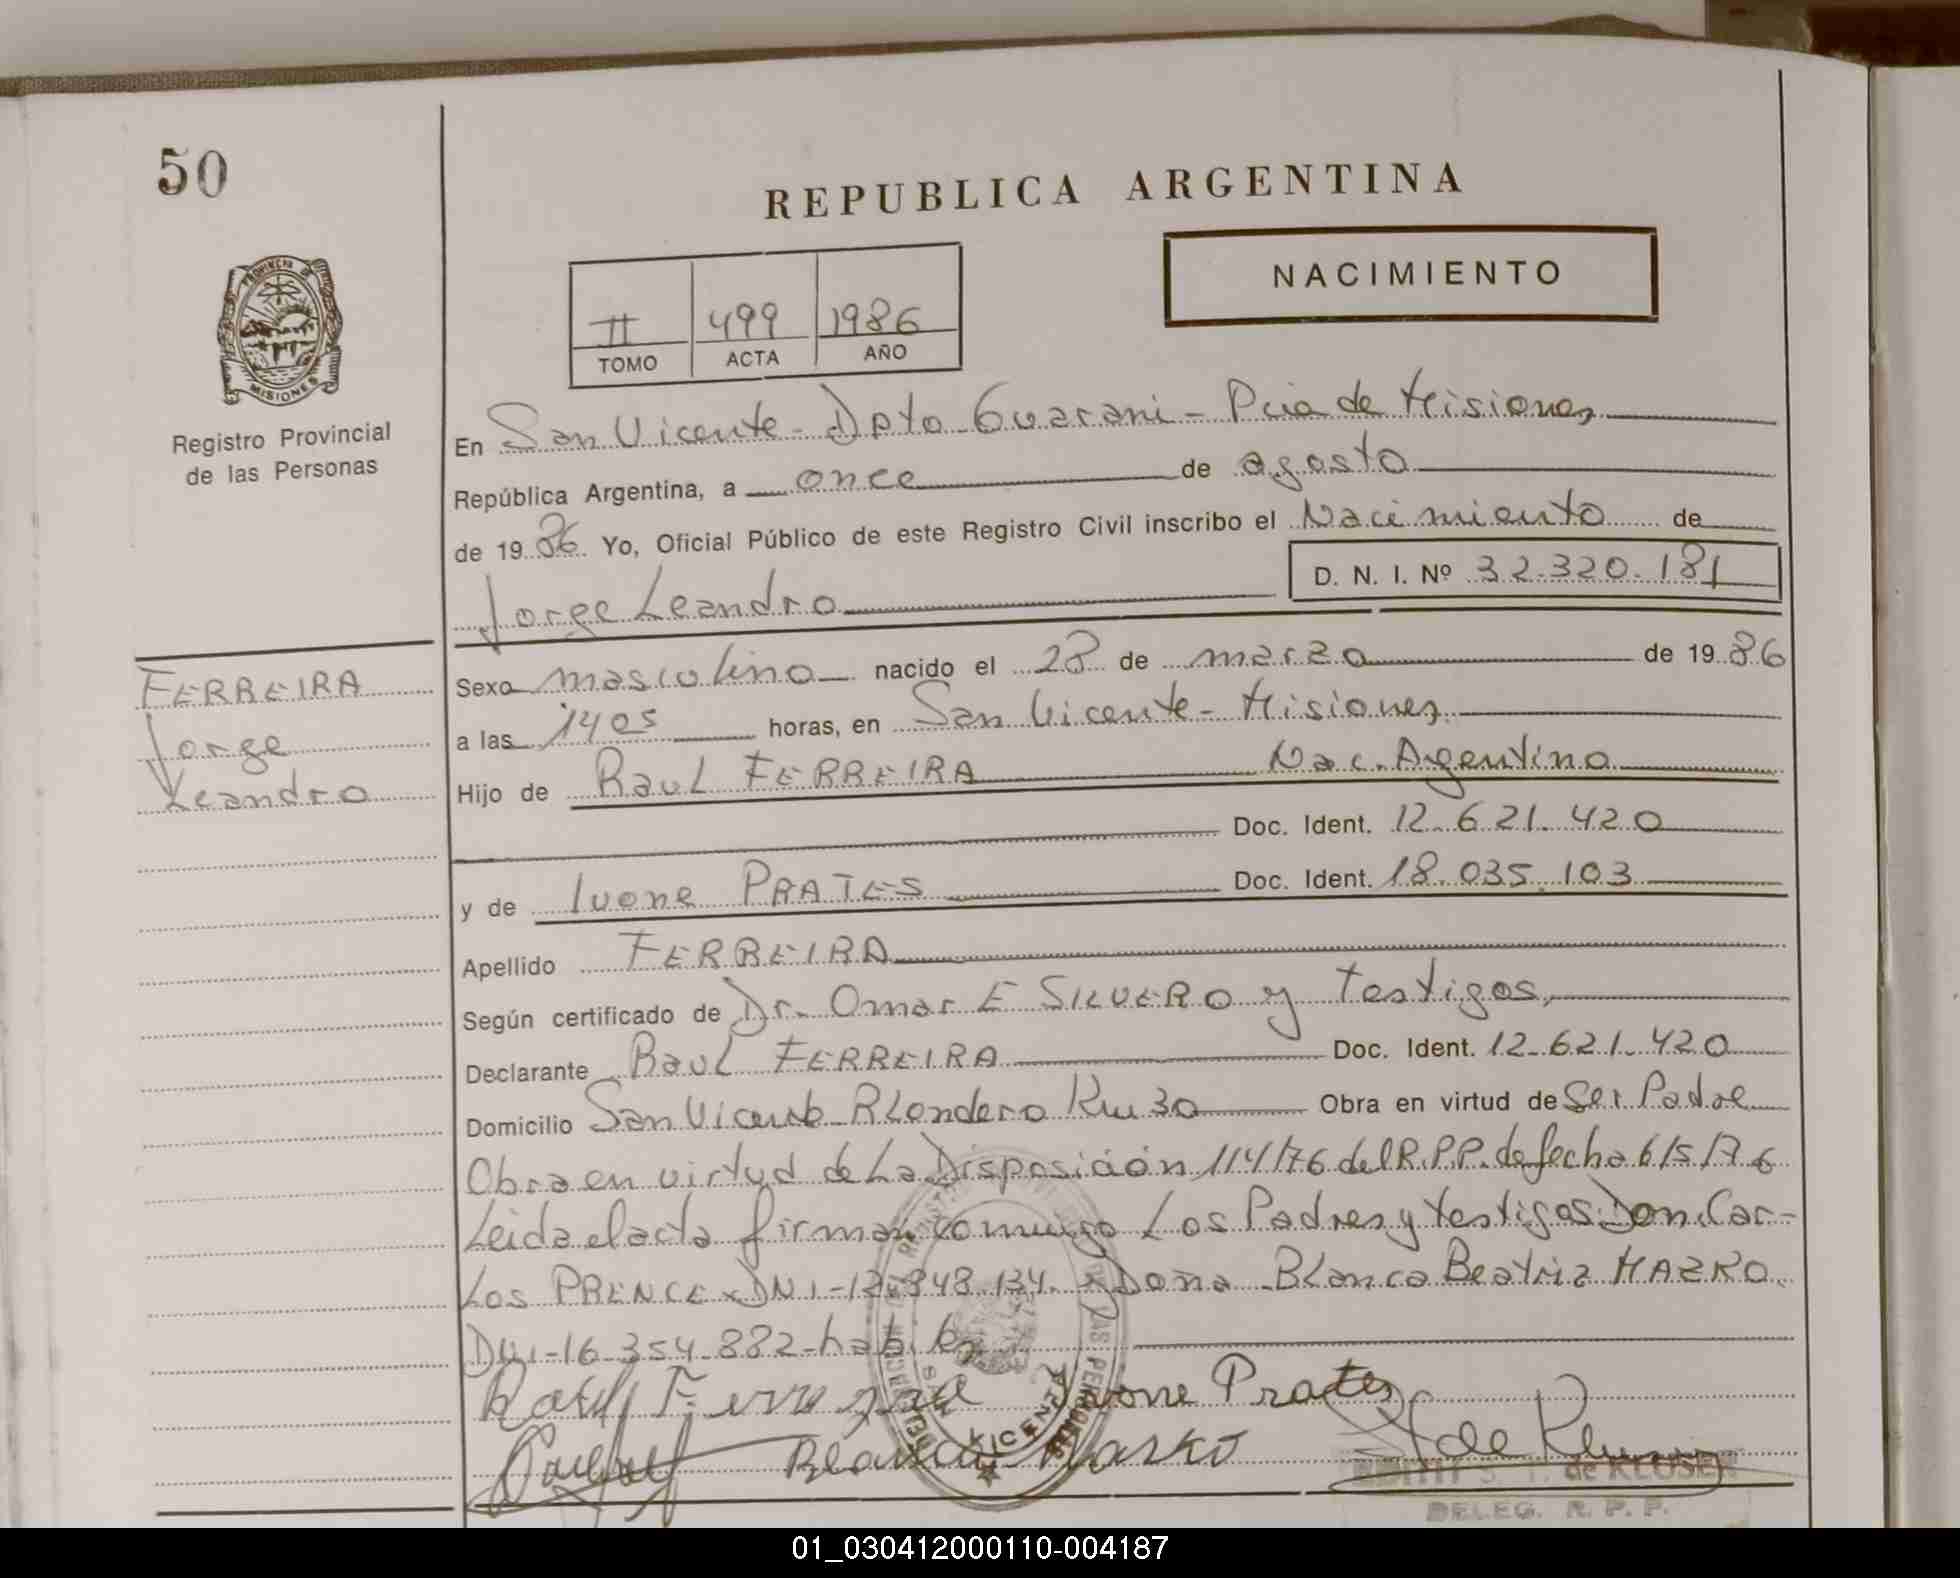 50
REPUBLICA ARGENTINA
PROVINCIA DE
MISIONES
Registro Provincial
de las Personas
II 499 1986
TOMO ACTA AÑO
NACIMIENTO
En San Vicente - Dpto Guarani - Pcia de Misiones
República Argentina, a once de agosto
de 1986 Yo, Oficial Público de este Registro Civil inscribo el Nacimiento de
D. N. I. Nº 32.320.181
Jorge Leandro
FERREIRA
Jorge
Leandro
Sexo masculino nacido el 28 de marzo de 1986
a las 1405 horas, en San Vicente - Misiones
Hijo de Raul FERREIRA Nac. Argentino
Doc. Ident. 12.621.420
y de Ivone PRATES Doc. Ident. 18.035.103
Apellido FERREIRA
Según certificado de Dr. Omar E SILVERO y Testigos,
Declarante Raul FERREIRA Doc. Ident. 12.621.420
Domicilio San Vicente Km 30 Obra en virtud de Ser Padre
Obra en virtud de La Disposición 114/76 del R.P.P. de fecha 6/5/76
Leida el acta firman conmigo Los Padres y testigos Don Car-
Los DNI Doña Blanca Beatriz
DNI-16.354.882-habiles
Raul Ferreira Ivone Prates
Blanca
de KLUSEN
DELEG. R. P. P.
01_030412000110-004187